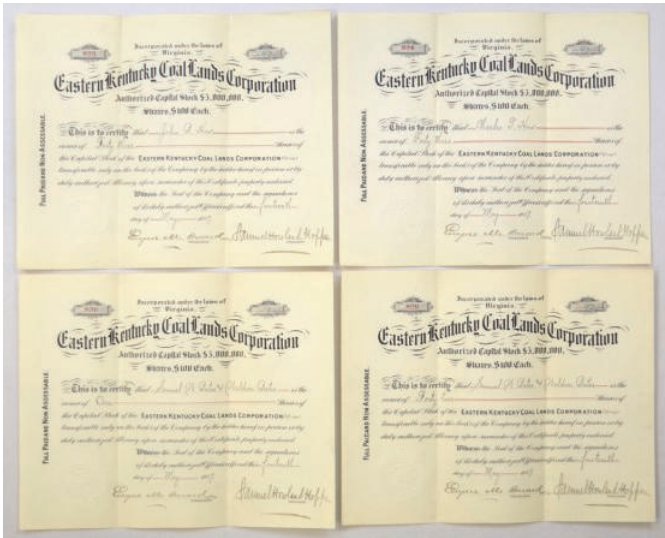 Incorporated under the laws of
Virginia.
Eastern Kentucky Coal Lands Corporation
Authorized Capital Stock $5,000,000.
Shares, $100 Each.
This is to certify that John is the
owner of Forty Shares of
the Capital Stock of the EASTERN KENTUCKY COAL LANDS CORPORATION
transferable only on the books of the Company by the holder thereof in person or by
duly authorized Attorney upon surrender of this Certificate properly endorsed.
Witness the Seal of the Company and the signatures
of its duly authorized Officers this fourteenth
day of May 1907
Samuel Howland Hoppe
FULL PAID AND NON ASSESSABLE.
Incorporated under the laws of
Virginia.
Eastern Kentucky Coal Lands Corporation
Authorized Capital Stock $5,000,000.
Shares, $100 Each.
This is to certify that Charles is the
owner of Forty Shares of
the Capital Stock of the EASTERN KENTUCKY COAL LANDS CORPORATION
transferable only on the books of the Company by the holder thereof in person or by
duly authorized Attorney upon surrender of this Certificate properly endorsed.
Witness the Seal of the Company and the signatures
of its duly authorized Officers this fourteenth
day of May 1907
Samuel Howland Hoppe
FULL PAID AND NON ASSESSABLE.
Incorporated under the laws of
Virginia.
Eastern Kentucky Coal Lands Corporation
Authorized Capital Stock $5,000,000.
Shares, $100 Each.
This is to certify that Samuel is the
owner of One Shares of
the Capital Stock of the EASTERN KENTUCKY COAL LANDS CORPORATION
transferable only on the books of the Company by the holder thereof in person or by
duly authorized Attorney upon surrender of this Certificate properly endorsed.
Witness the Seal of the Company and the signatures
of its duly authorized Officers this fourteenth
day of May 1907
Samuel Howland Hoppe
FULL PAID AND NON ASSESSABLE.
Incorporated under the laws of
Virginia.
Eastern Kentucky Coal Lands Corporation
Authorized Capital Stock $5,000,000.
Shares, $100 Each.
This is to certify that Samuel is the
owner of Forty Shares of
the Capital Stock of the EASTERN KENTUCKY COAL LANDS CORPORATION
transferable only on the books of the Company by the holder thereof in person or by
duly authorized Attorney upon surrender of this Certificate properly endorsed.
Witness the Seal of the Company and the signatures
of its duly authorized Officers this fourteenth
day of May 1907
Samuel Howland Hoppe
FULL PAID AND NON ASSESSABLE.